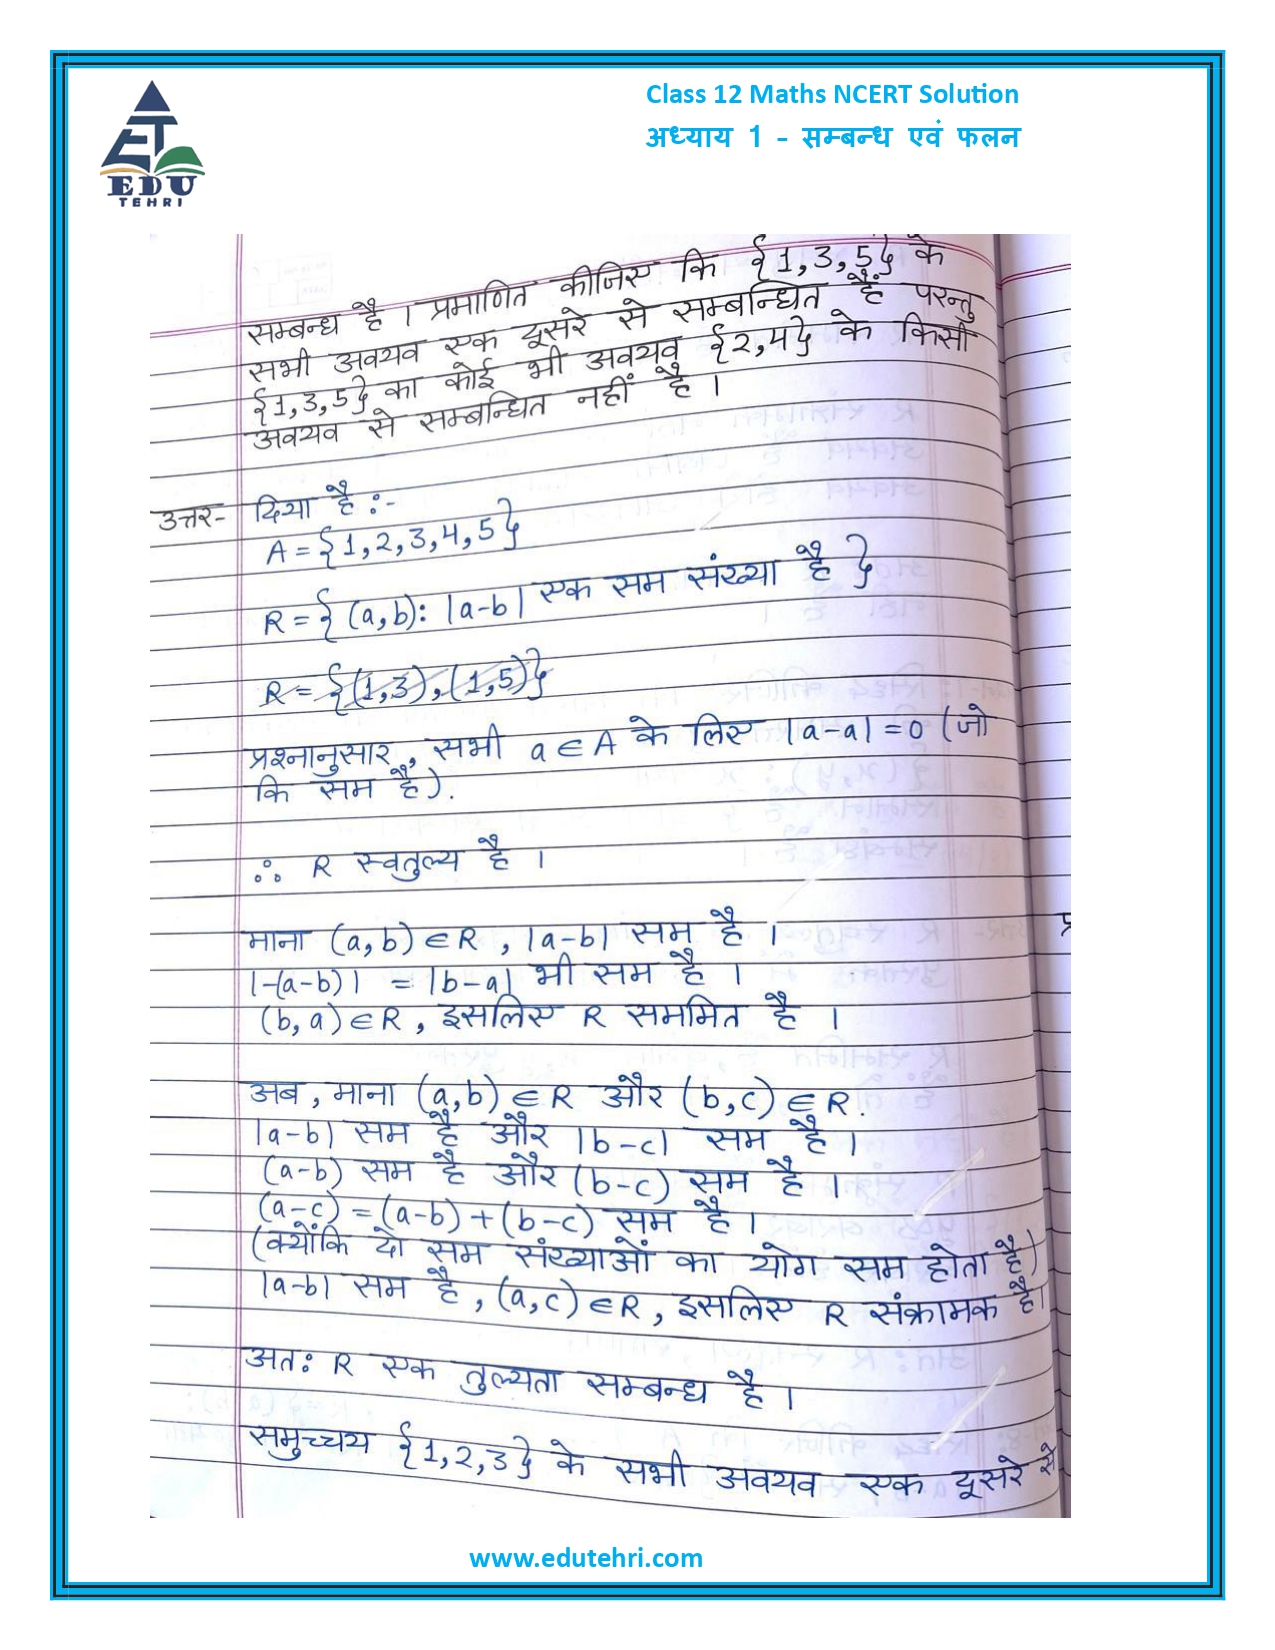 EDU
TEHRI
Class 12 Maths NCERT Solution
अध्याय 1 - सम्बन्ध एवं फलन
सम्बन्ध है । प्रमाणित कीजिए कि {1,3,5} के
सभी अवयव एक दूसरे से सम्बन्धित हैं परन्तु
{1,3,5} का कोई भी अवयव {2,4} के किसी
अवयव से सम्बन्धित नहीं है ।
उत्तर- दिया है :-
A = {1,2,3,4,5}
R = { (a,b): |a-b| एक सम संख्या है }
R = {(1,3),(1,5)}
प्रश्नानुसार, सभी a ∈ A के लिए |a-a| = 0 (जो
कि सम है).
∴ R स्वतुल्य है ।
माना (a,b) ∈ R , |a-b| सम है ।
|-(a-b)| = |b-a| भी सम है ।
(b,a) ∈ R , इसलिए R सममित है ।
अब, माना (a,b) ∈ R और (b,c) ∈ R.
|a-b| सम है और |b-c| सम है ।
(a-b) सम है और (b-c) सम है ।
(a-c) = (a-b) + (b-c) सम है ।
(क्योंकि दो सम संख्याओं का योग सम होता है)
|a-b| सम है, (a,c) ∈ R , इसलिए R संक्रामक है।
अतः R एक तुल्यता सम्बन्ध है ।
समुच्चय {1,2,3} के सभी अवयव एक दूसरे से
www.edutehri.com